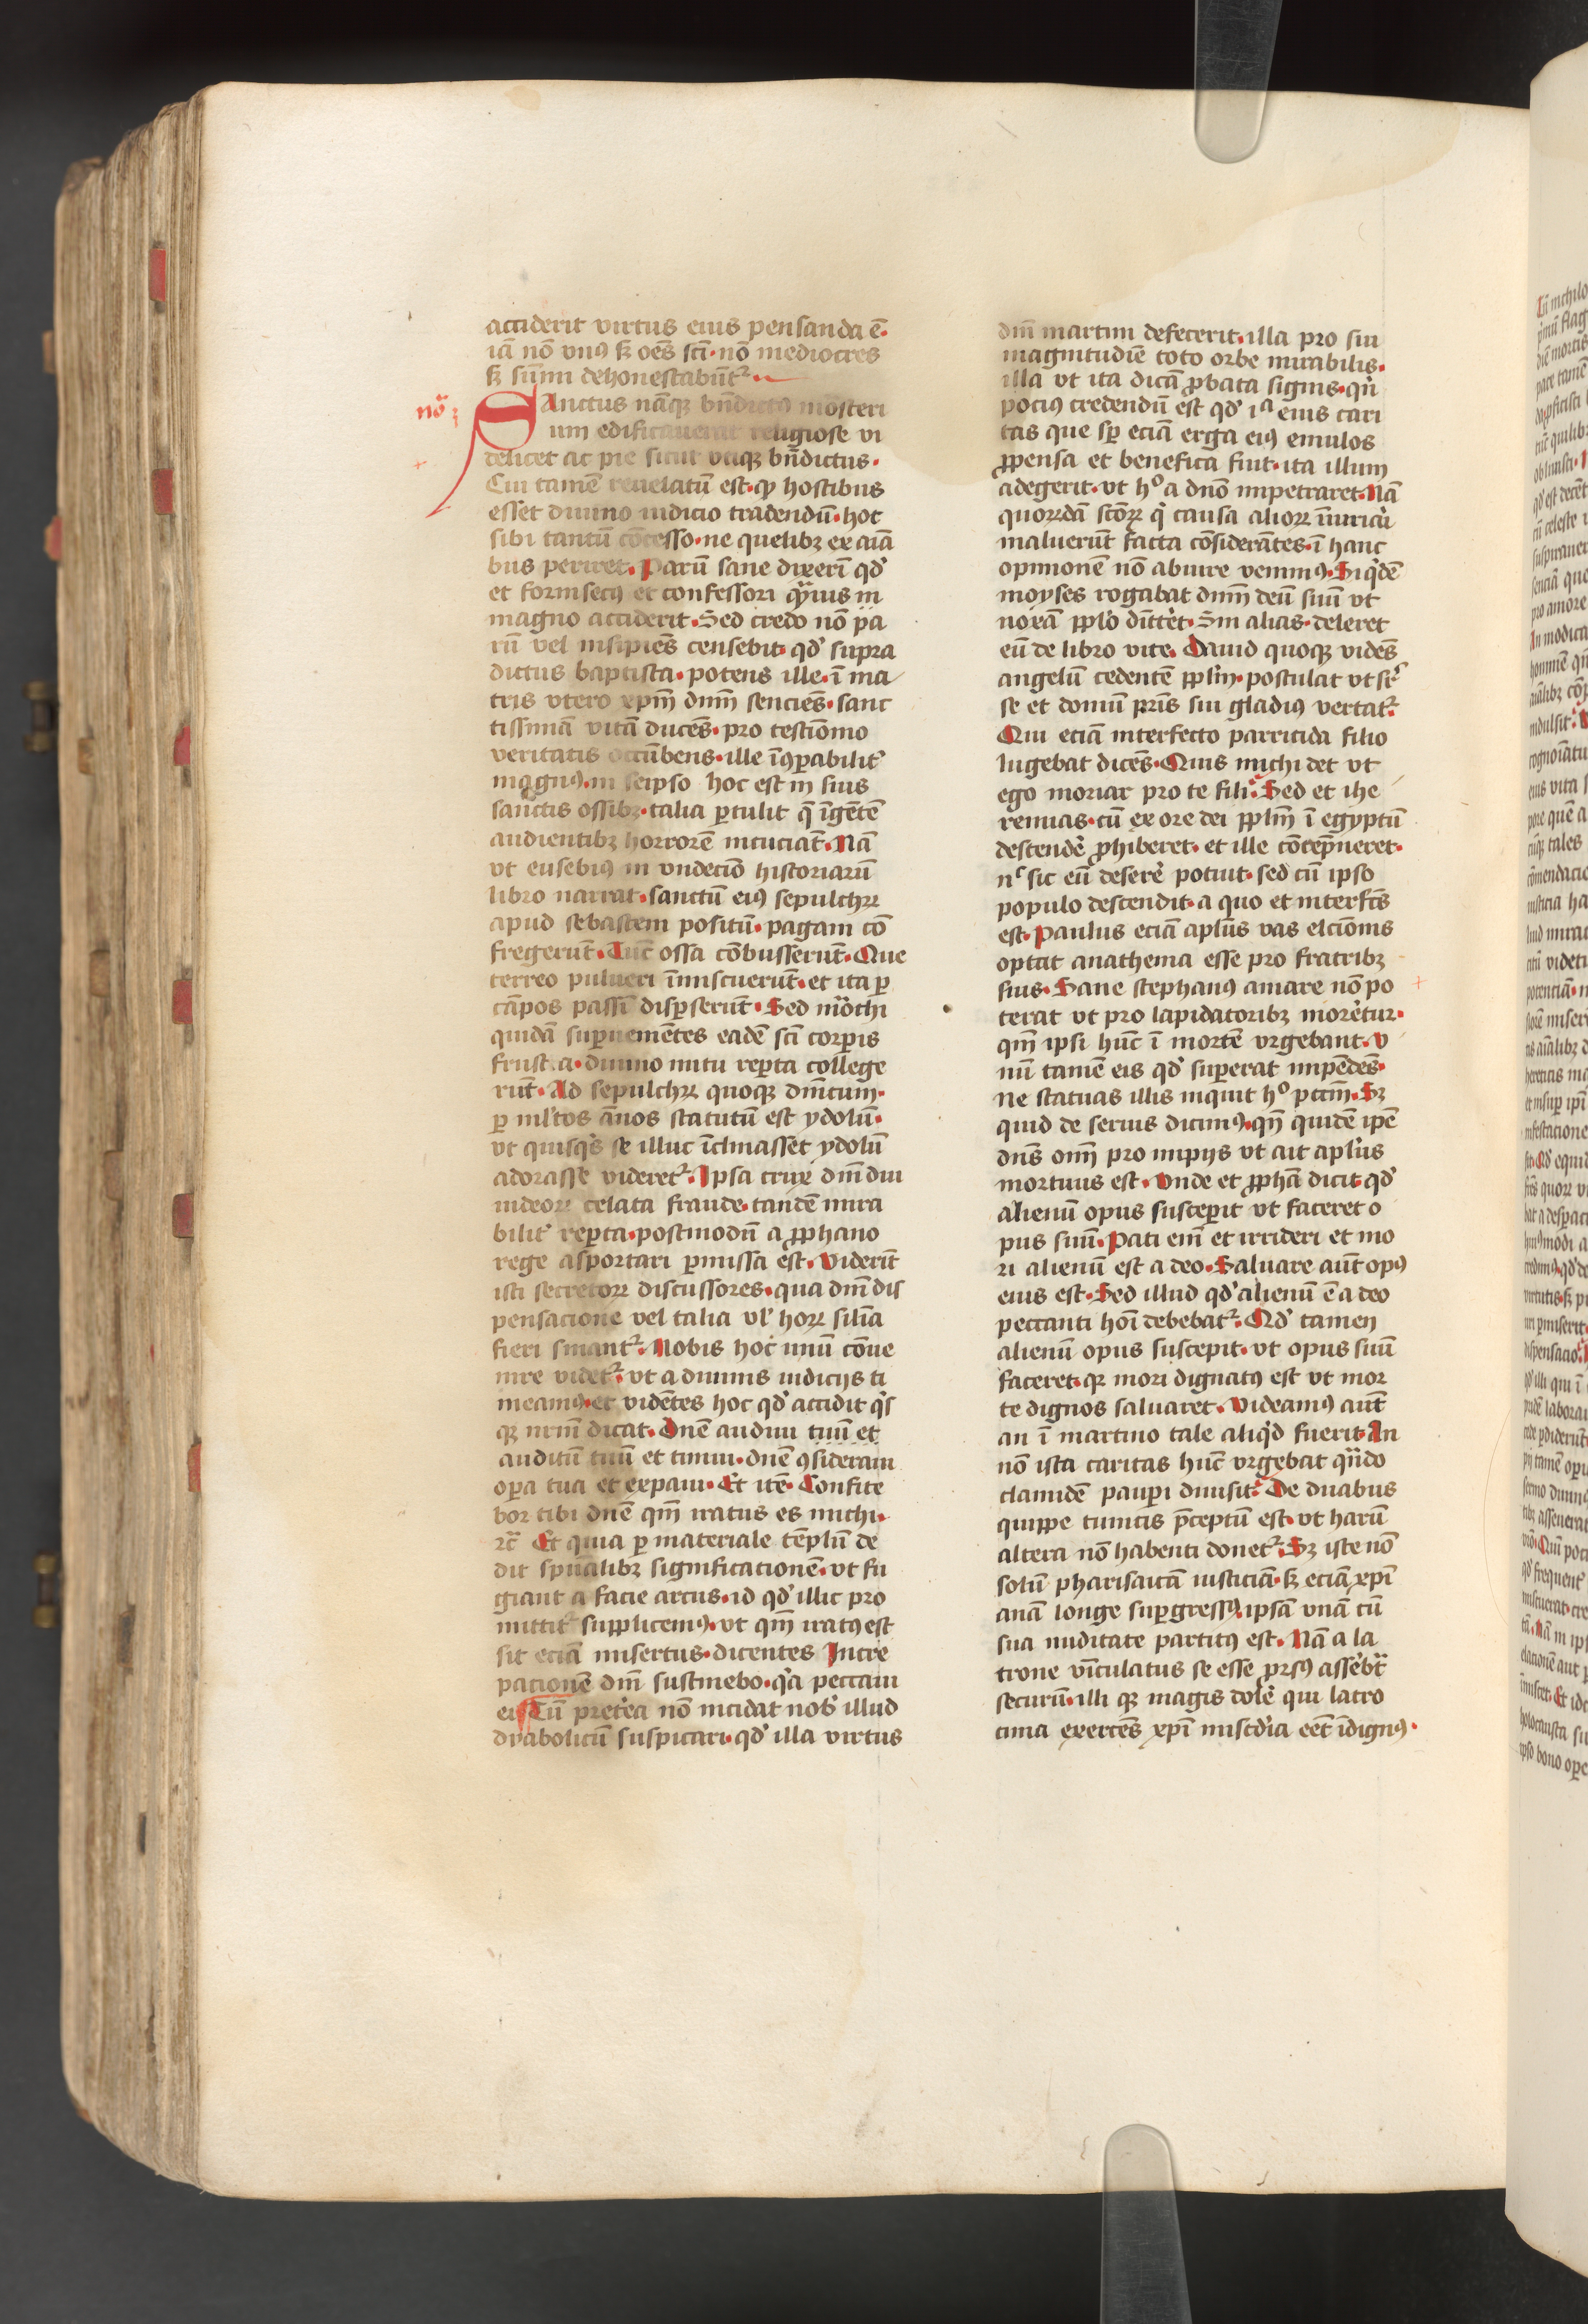 acciderit virtus eius pensanda ē.
iā nō vnꝰ sꝫ oēs sc̄i. nō mediocres
sꝫ sūmi dehonestabūtᷣ.
nō
SAnctus nāqꝫ bn̄dictꝰ mōsteri
um edificauerat religiose vi
delicet ac pie sicut vtiqꝫ bn̄dictus.
Cui tamē reuelatū est. ꝙ hostibus
esset diuino iudicio tradendū. hoc
sibi tantū cōcesso. ne quelibꝫ ex aīa
bus periret. Parū sane dixerī qd̓
et forinsecꝰ et confessori
magno acciderit. Sed credo nō pa
rū vel insipiēs censebit qd̓ supra
dictus baptista. potens ille. ī ma
tris vtero xp̄m dnm̄ senciēs. sanc
tissimā vitā ducēs. pro testiōnio
veritatis occūbens. ille īꝯꝑabilit᷑
magnꝰ. in seipso hoc est in suis
sanctis ossibꝫ. talia ꝑtulit q̄ īgētē
audientibꝫ horrorē incuciāt. Nā
vt eusebiꝰ in vndecīo historiarū
libro narrat. sanctū eiꝰ sepulchꝝ
apud sebastem positū. pagani cō
fregerūt. Tūc ossa cōbusserūt. Que
terreo pulueri īmiscuerūt. et ita ꝑ
cāpos passī disꝑserūt. Sed mōchi
quidā suꝑuenientes eadē sc̄i corꝑis
frusta. diuino nutu reꝑta college
rūt. Ad sepulchꝝ quoqꝫ dnīcum.
ꝑ ml̄tos ānos statutū est ydolū.
vt quisqͥs se illuc īclinasset ydolū
adorasse videretᷣ. Ipsa crux dnī diu
iudeoꝝ celata fraude. tandē mira
bilit᷑ reꝑta. postmodū a ꝓphano
rege asportari ꝑmissa est. Viderīt
isti secretoꝝ discussores. qua dnī dis
pensacione vel talia vl̓ hoꝝ silīa
fieri sinantᷣ. Nobis hoc unū cōue
nire videtᷣ. vt a diuinis iudicijs ti
meamꝰ. et vidētes hoc qd̓ accidit qͥs
qꝫ nr̄m dicat. Dn̄e audiui tuū et
auditū tuū et timui. dn̄e ꝯsideraui
oꝑa tua et expaui. Et itē. Confite
bor tibi dn̄e qm̄ iratus es michi.
ꝛc̄ Et quia ꝑ materiale tēplū de
dit spūalibꝫ significationē. vt fu
giant a facie arcus. id qd̓ illic pro
mittit᷑ supplicemꝰ. vt qm̄ iratꝰ est
sit eciā misertus. dicentes Incre
pacionē dnī sustinebo. qͥa peccaui
ei. Cū pret̓ea nō incidat nob̓ illud
dyabolicū suspicari. qd̓ illa virtus
dnī martini defecerit. illa pro sui
magnitudīe toto orbe mirabilis.
illa vt ita dicā ꝓbata signis. qͥn
pociꝰ credendū est qd̓ iᵃ eius cari
tas que sꝑ eciā erga eiꝰ emulos
ꝓpensa et benefica fuit. ita illum
adegerit. vt hᵒ a dnō impetraret. Nā
quorūdā sctōꝝ qͥ causa alioꝝ
maluerūt facta cōsiderātes. ī hanc
opinionē nō abiure venimꝰ. Siqͥdē
moyses rogabat dnm̄ deū suū vt
noxā ppl̓o dītt̓et. Sin alias. deleret
eū de libro vite. Dauid quoqꝫ vidēs
angelū cedentē ppl̄m. postulat vt
se et domū pr̄is sui gladiꝰ vertatᷣ.
Qui eciā interfecto parricida filio
lugebat dicēs. Quis michi det vt
ego moriar pro te fili. Sed et ihe
remias. cū ex ore dei ppl̄m ī egyptū
descend̓e ꝓhiberet. et ille cōtēpneret.
nᶜ sic eū deser̓e potuit. sed cū ipso
populo descendit. a quo et interfc̄s
est. Paulus eciā apl̄us vas elcīonis
optat anathema esse pro fratribꝫ
suis. Sane stephanꝰ amare nō po
terat vt pro lapidatoribꝫ mor̓etur.
qm̄ ipsi hūc ī mortē vrgebant. v
nū tamē eis qd̓ suꝑerat impēdēs.
ne statuas illis inquit hᵒ pctm̄. Sꝫ
quid de seruis dicimꝰ. qn̄ quidē ipē
dn̄s om̄ pro impijs vt ait apl̄us
mortuus est. Vnde et ꝓphā dicit qd̓
alienū opus susceꝑit vt faceret o
pus suū. Pati eni̅ et irrideri et mo
ri alienū est a deo. Saluare aūt opꝰ
eius est. Sed illud qd̓ alienū ē a deo
peccanti hoī debebatᷣ. Qd̓ tamen
alienū opus suscepit. vt opus suū
faceret. qꝫ mori dignatꝰ est vt mor
te dignos saluaret. Videamꝰ aūt
an ī martino tale aliqͥd fuerit. An
nō ista caritas hūc vrgebat qn̄do
clamidē pauꝑi diuisit. De duabus
quippe tunicis p̄ceptū est. vt harū
altera nō habenti donetᷣ. Sꝫ iste nō
solū pharisaicā iusticiā. sꝫ eciā xp̄i
anā longe suꝑgressꝰ. ipsā vnā cū
sua nuditate partitꝰ est. Nā a la
trone vīculatus se esse ꝓrsꝰ asser̓bt
securū. illi qꝫ magis dol̓e qui latro
cinia exercēs xp̄i miscd̓ia eēt īdignꝰ.